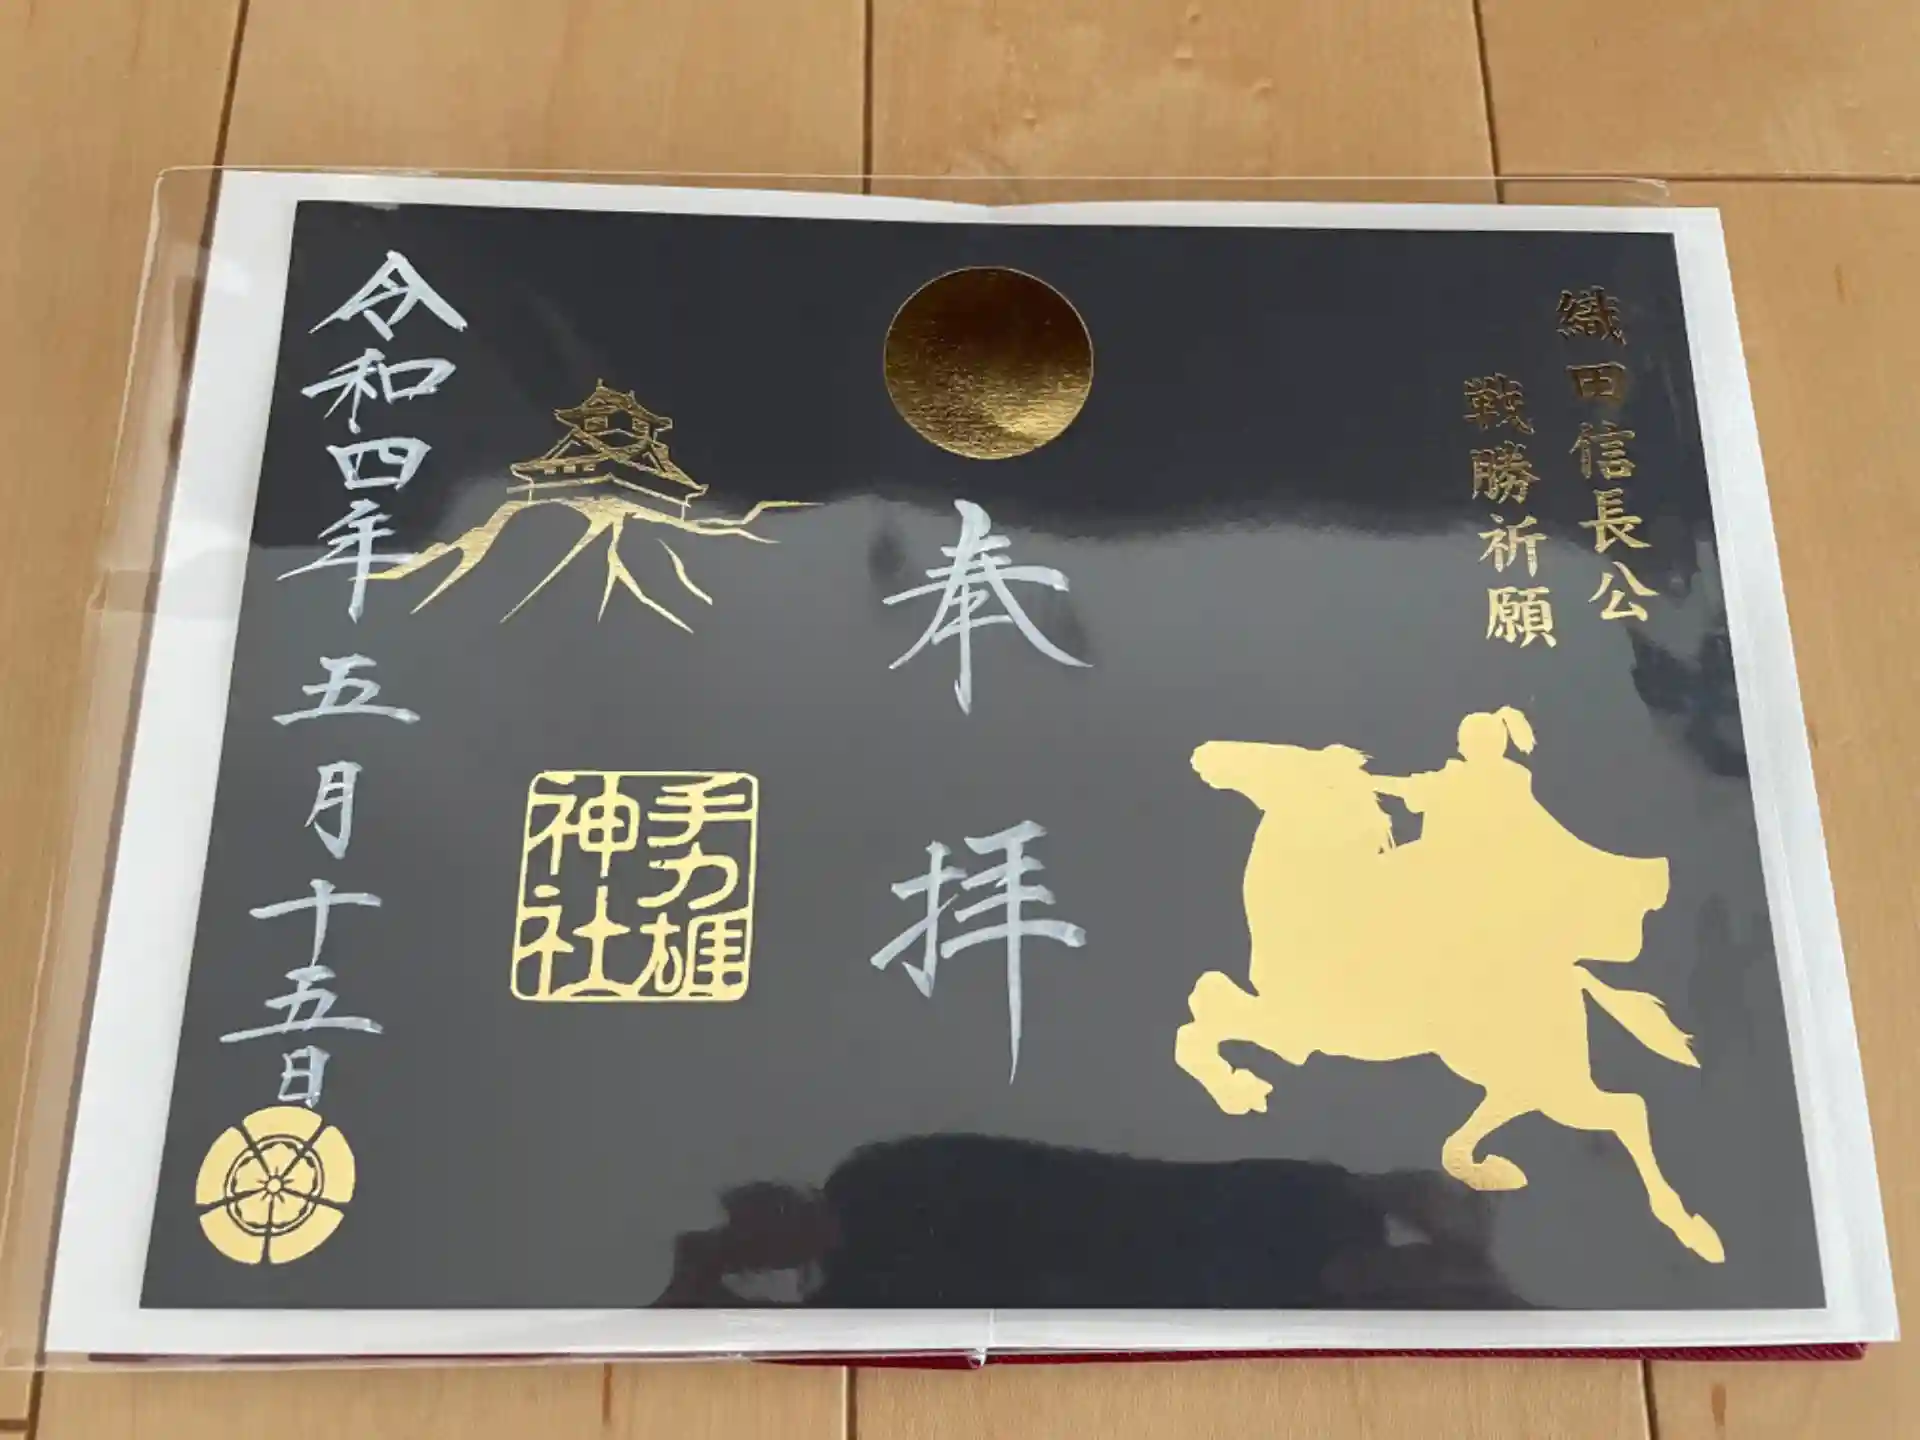 織田信長公
戦勝祈願
奉拝
手力雄
神社
令和四年五月十五日